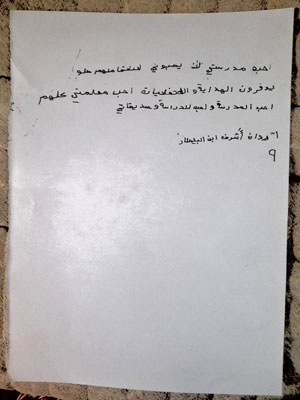 احب مدرستي لان يحبوني تعاملهم حلو
يوفرون الهداية والحفليات احب معلمتي كلهم
احب المدرسة واحب للدراسة وصديقاتي
١- مروان أشرف ابن البيطار
٩